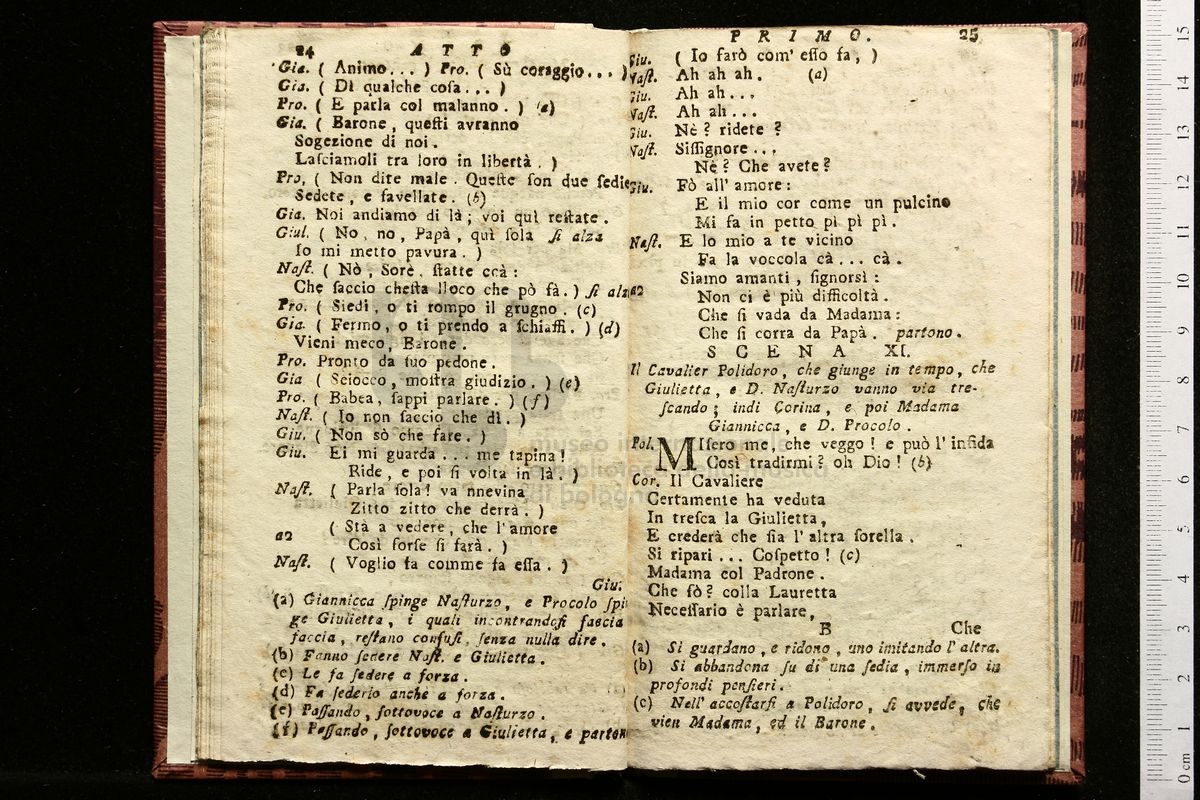 24 ATTO
Gia. ( Animo... ) Pro. ( Sù coraggio... )
Gia. ( Dì qualche coſa... )
Pro. ( E parla col malanno. ) (a)
Gia. ( Barone, queſti avranno
Sogezione di noi.
Laſciamoli tra loro in libertà. )
Pro, ( Non dite male. Queſte ſon due ſedie
Sedete, e favellate. (b)
Gia. Noi andiamo di là; voi quì reſtate.
Giul. ( No, no, Papà, quì ſola ſi alza
Io mi metto pavura. )
Naſt. ( Nò, Sorè, ſtatte ccà:
Che ſaccio cheſta lloco che pò fà. ) ſi alza
Pro. ( Siedi, o ti rompo il grugno. (c)
Gia. ( Fermo, o ti prendo a ſchiaffi. ) (d)
Vieni meco, Barone.
Pro. Pronto da ſuo pedone.
Gia ( Sciocco, moſtra giudizio. ) (e)
Pro. ( Babea, ſappi parlare. ) (f)
Naſt. ( Io non ſaccio che dì. )
Giu. ( Non sò che fare. )
Giu. Ei mi guarda... me tapina!
Ride, e poi ſi volta in là. )
Naſt. ( Parla ſola! va nnevina
Zitto zitto che derrà. )
a2 ( Stà a vedere, che l'amore
Così forſe ſi farà. )
Naſt. ( Voglio fa comme fa eſſa. )
Giu.
(a) Giannicca ſpinge Naſturzo, e Procolo ſpi
ge Giulietta, i quali incontrandoſi faccia
faccia, reſtano confuſi, ſenza nulla dire.
(b) Fanno ſedere Naſt. e Giulietta.
(c) Le fa ſedere a forza.
(d) Fa ſederlo anche a forza.
(e) Paſſando, ſottovoce a Naſturzo.
(f) Paſſando, ſottovoce a Giulietta, e parton
PRIMO. 25
Giu. ( Io farò com' eſſo fa, )
Naſt. Ah ah ah. (a)
Giu. Ah ah...
Naſt. Ah ah...
Giu. Nè? ridete?
Naſt. Siſſignore...
Nè? Che avete?
Giu. Fò all' amore:
E il mio cor come un pulcino
Mi fa in petto pì pì pì.
Naſt. E lo mio a te vicino
Fa la voccola cà... cà.
Siamo amanti, ſignorsì:
a2 Non ci è più difficoltà.
Che ſi vada da Madama:
Che ſi corra da Papà. partono.
SCENA XI.
Il Cavalier Polidoro, che giunge in tempo, che
Giulietta, e D. Naſturzo vanno via tre-
ſcando; indi Corina, e poi Madama
Giannicca, e D. Procolo.
Pol. MIſero me, che veggo! e può l' infida
Così tradirmi? oh Dio! (b)
Cor. Il Cavaliere
Certamente ha veduta
In treſca la Giulietta,
E crederà che ſia l' altra ſorella.
Si ripari... Coſpetto! (c)
Madama col Padrone.
Che fò? colla Lauretta
Neceſſario è parlare,
B Che
(a) Si guardano, e ridono, uno imitando l' altra.
(b) Si abbandona ſu di una ſedia, immerſo in
profondi penſieri.
(c) Nell' accoſtarſi a Polidoro, ſi avvede, che
vien Madama, ed il Barone.
0 cm 1 2 3 4 5 6 7 8 9 10 11 12 13 14 15